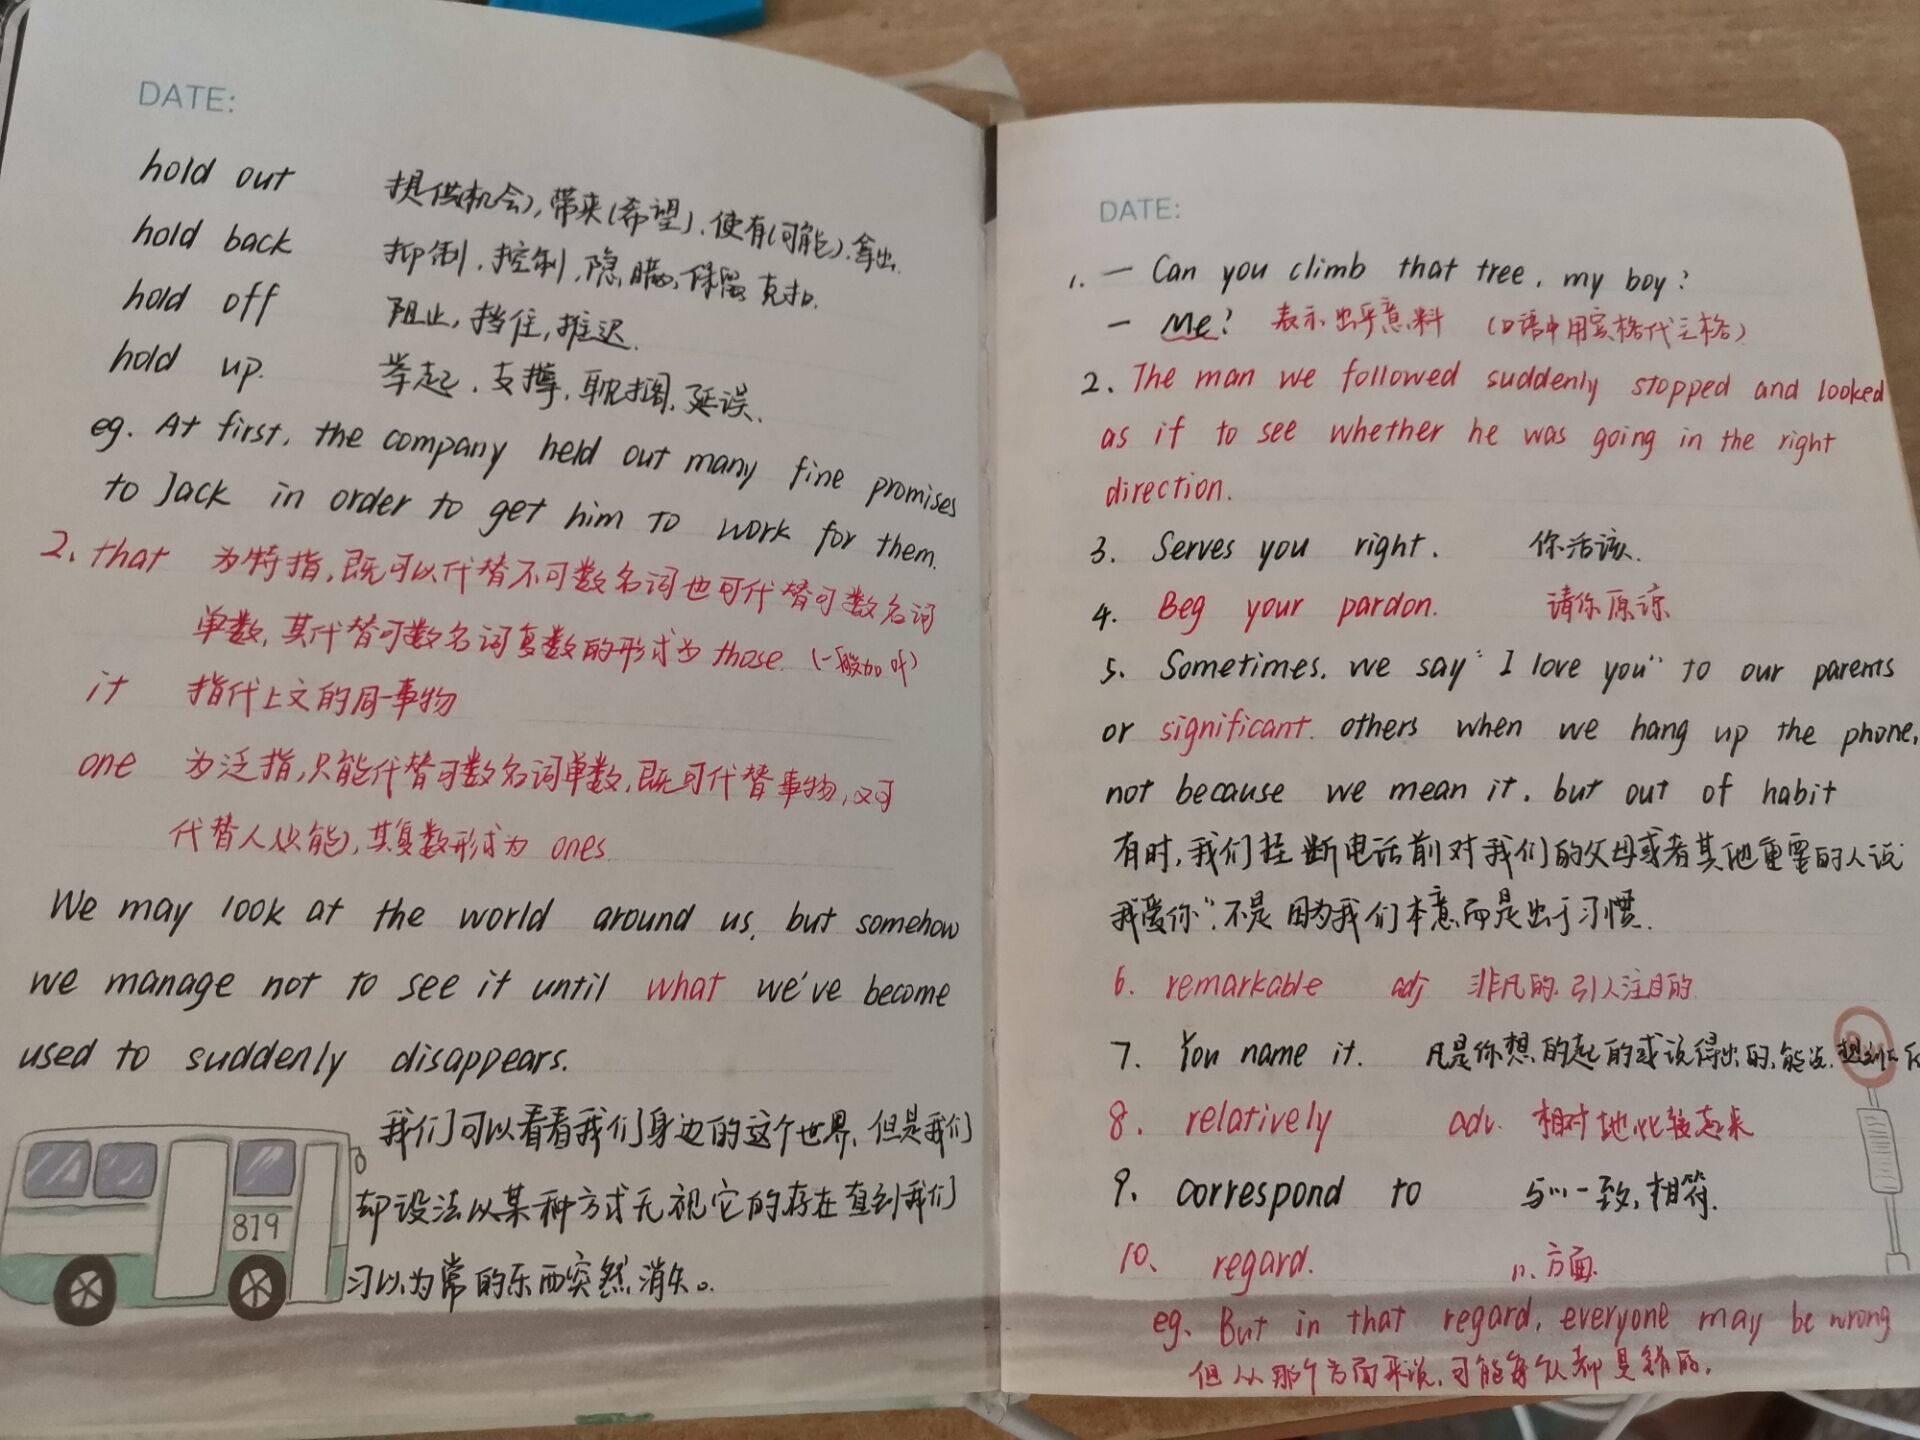 DATE:
hold out 提供(机会),带来(希望).使有(可能).拿出.
hold back 抑制.控制,隐瞒,保留克扣.
hold off 阻止,挡住,推迟.
hold up. 举起.支撑,耽搁,延误.
eg. At first, the company held out many fine promises
to Jack in order to get him to work for them.
2. that 为特指,既可以代替不可数名词也可代替可数名词
单数,其代替可数名词复数的形式为 those. (一般加of)
it 指代上文的同一事物
one 为泛指,只能代替可数名词单数,既可代替事物,又可
代替人,其复数形式为 ones.
We may look at the world around us, but somehow
we manage not to see it until what we've become
used to suddenly disappears.
我们可以看看我们身边的这个世界,但是我们
却设法以某种方式无视它的存在直到我们
习以为常的东西突然消失。
819
DATE:
1. — Can you climb that tree, my boy?
— Me? 表示出乎意料 (口语中用宾格代主格)
2. The man we followed suddenly stopped and looked
as if to see whether he was going in the right
direction.
3. Serves you right. 你活该.
4. Beg your pardon. 请你原谅
5. Sometimes, we say "I love you" to our parents
or significant others when we hang up the phone,
not because we mean it, but out of habit
有时,我们挂断电话前对我们的父母或者其他重要的人说
我爱你",不是因为我们本意而是出于习惯.
6. remarkable adj 非凡的.引人注目的
7. You name it. 凡是你想的起的或说得出的,能说.
8. relatively adv. 相对地 比较起来
9. correspond to 与…一致,相符.
10. regard. n.方面
eg. But in that regard, everyone may be wrong
但从那个方面来说,可能每个人都是错的.